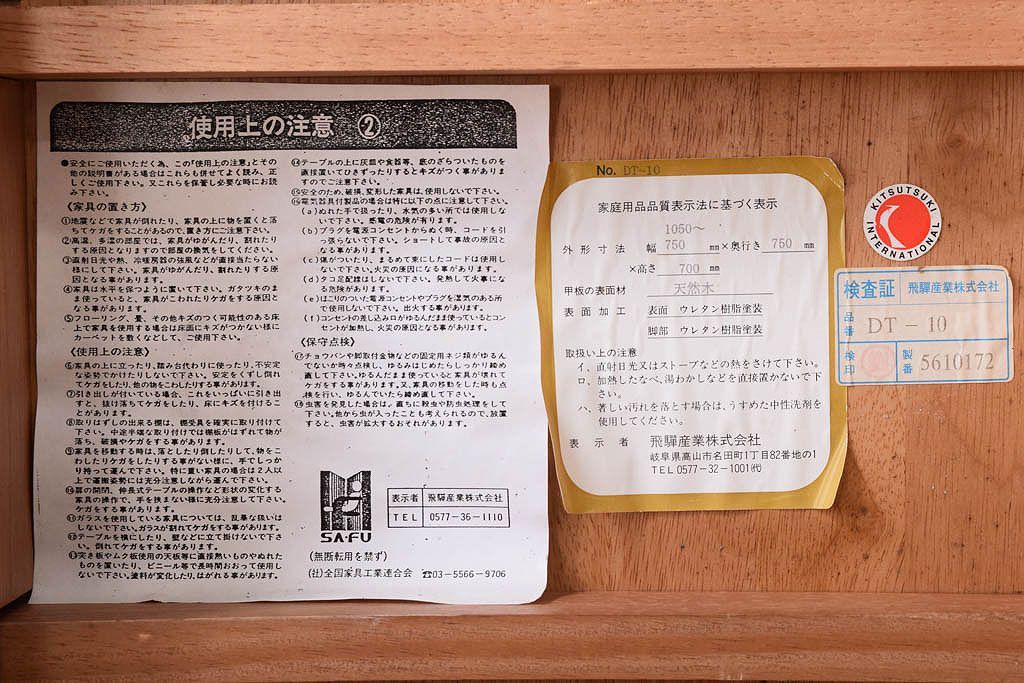 使用上の注意 ②
●安全にご使用いただく為、この「使用上の注意」とその
他の説明書がある場合はこれらも併せてよく読み、正
しくご使用下さい。又これらを保管し必要な時にお読
み下さい。
〈家具の置き方〉
①地震などで家具が倒れたり、家具の上に物を置くと落
ちてケガをすることがあるので、置き方にご注意下さい。
②高温、多湿の部屋では、家具がゆがんだり、割れたり
する原因となりますので部屋の換気をしてください。
③直射日光や熱、冷暖房器の強風などが直接当たらない
様にして下さい。家具がゆがんだり、割れたりする原
因となる事があります。
④家具は水平を保つように置いて下さい。ガタツキのま
ま使っていると、家具がこわれたりケガをする原因と
なる事があります。
⑤フローリング、畳、その他キズのつく可能性のある床
上で家具を使用する場合は床面にキズがつかない様に
カーペットを敷くなどして、ご使用下さい。
〈使用上の注意〉
⑥家具の上に立ったり、踏み台代わりに使ったり、不安定
な姿勢でかけたりしないで下さい。安定をくずし倒れ
てケガをしたり、他の物をこわしたりする事があります。
⑦引き出しが付いている場合、これをいっぱいに引き出
すと、抜け落ちてケガをしたり、床にキズを付けるこ
とがあります。
⑧取りはずしの出来る棚は、棚受具を確実に取り付けて
下さい。中途半端な取り付けでは棚板がはずれて物が
落ち、破損やケガをする事があります。
⑨家具を移動する時は、落としたり倒したりして、物をこ
わしたりケガをしたりする事がない様に、手でしっか
り持って運んで下さい。特に重い家具の場合は2人以
上で運搬姿勢には充分注意しながら運んで下さい。
⑩扉の開閉、伸長式テーブルの操作など形状の変化する
家具の操作で、手を挟まない様に充分注意して下さい。
ケガをする事があります。
⑪ガラスを使用している家具については、乱暴な扱いは
しないで下さい。ガラスが割れてケガをする事があります。
⑫テーブルを横にしたり、壁などに立て掛けないで下さ
い。倒れてケガをする事があります。
⑬突き板やムク板使用の天板等に直接熱いものやぬれた
ものを置いたり、ビニール等で長時間おおって使用し
ないで下さい。塗料が変化したり、はがれる事があります。
⑭テーブルの上に灰皿や食器等、底のざらついたものを
直接置いてひきずったりするとキズがつく事がありま
すのでご注意下さい。
⑮安全のため、破損、変形した家具は、使用しないで下さい。
⑯電気器具付製品の場合は特に以下の点に注意して下さい。
(a)ぬれた手で扱ったり、水気の多い所では使用しな
いで下さい。感電の危険が有ります。
(b)プラグを電源コンセントからぬく時、コードを引
っ張らないで下さい。ショートして事故の原因と
なる事があります。
(c)傷がついたり、まるめて束にしたコードは使用し
ないで下さい。火災の原因になる事があります。
(d)タコ足配線はしないで下さい。発熱して火事にな
る危険があります。
(e)ほこりのついた電源コンセントやプラグを湿気のある所
で使用しないで下さい。出火する事があります。
(f)コンセントの差し込み口がゆるんだまま使っているとコン
セントが加熱し、火災の原因となる事があります。
〈保守点検〉
⑰チョウバンや脚取付金物などの固定用ネジ類がゆるん
でないか時々点検し、ゆるみはじめたらしっかり締め
直して下さい。ゆるんだまま使っていると家具が壊れて
ケガをする事があります。又、家具の移動をした時も点
検を行い、ゆるんでいたら締め直して下さい。
⑱虫害を発見した場合は、直ちに殺虫や防虫処理をして
下さい。他から虫が入ったことも考えられるので、放置
すると、虫害が拡大するおそれがあります。
SA-FU
表示者 飛騨産業株式会社
TEL 0577-36-1110
(無断転用を禁ず)
(社)全国家具工業連合会 ☎03-5566-9706
No. DT-10
家庭用品品質表示法に基づく表示
1050〜
外形寸法 幅 750 mm×奥行き 750 mm
×高さ 700 mm
甲板の表面材 天然木
表面加工 表面 ウレタン樹脂塗装
脚部 ウレタン樹脂塗装
取扱い上の注意
イ、直射日光又はストーブなどの熱をさけて下さい。
ロ、加熱したなべ、湯わかしなどを直接置かないで下
さい。
ハ、著しい汚れを落とす場合は、うすめた中性洗剤を
使用してください。
表示者 飛騨産業株式会社
岐阜県高山市名田町1丁目82番地の1
TEL 0577-32-1001㈹
KITSUTSUKI
INTERNATIONAL
検査証 飛騨産業株式会社
品番 DT-10
検印 製番 5610172